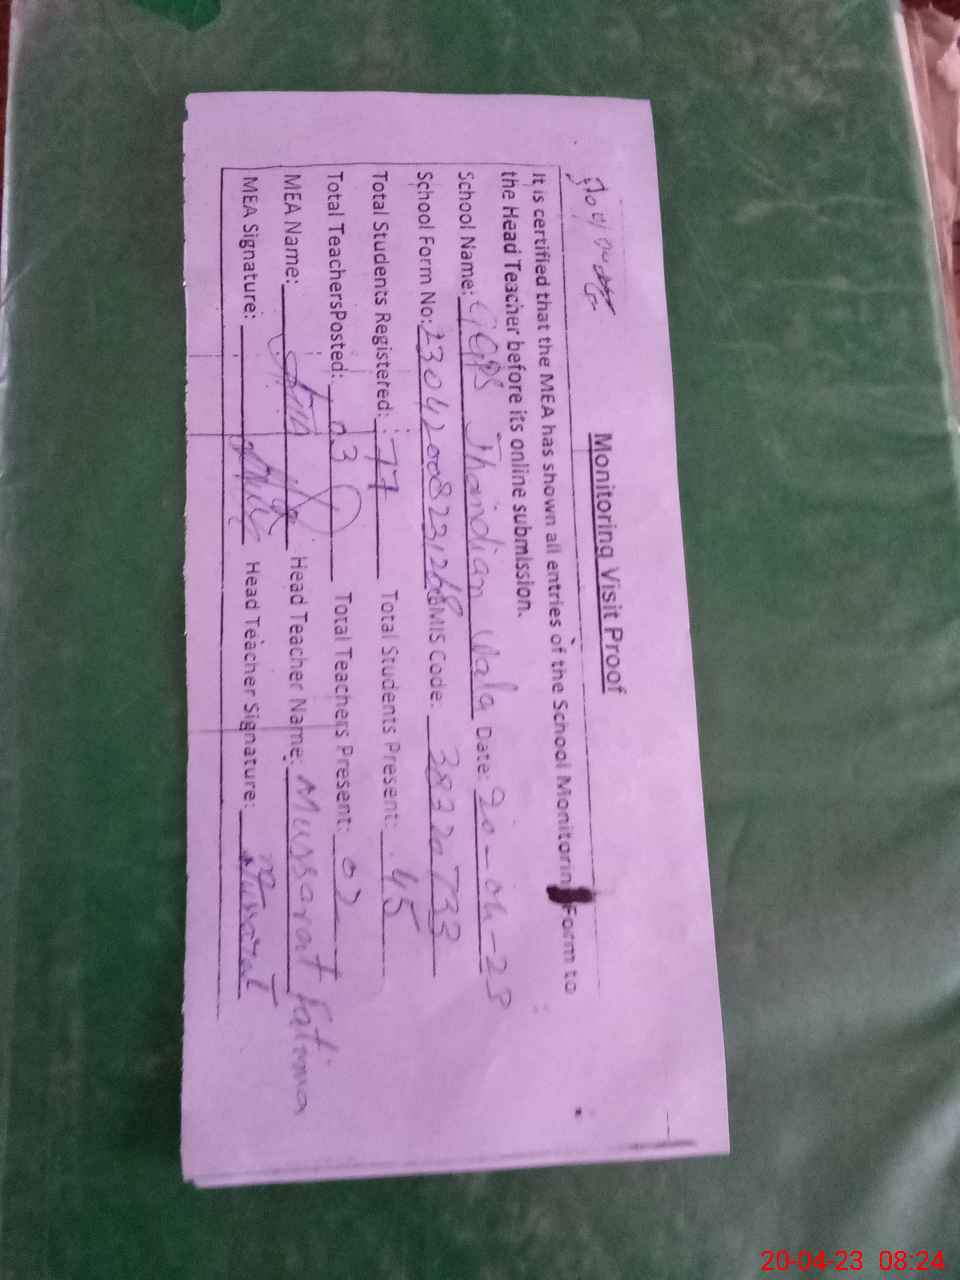 Monitoring Visit Proof
It is certified that the MEA has shown all entries of the School Monitorin Form to
the Head Teacher before its online submission.
School Name: GGPS Jhandian Wala Date: 20-04-23
School Form No: 230420082312 EMIS Code: 38320733
Total Students Registered: 77 Total Students Present: 45
Total TeachersPosted: 03 Total Teachers Present: 02
MEA Name: Head Teacher Name: Mussarat Fatima
MEA Signature: Head Teacher Signature: Mussarat
20-04-23 08:24